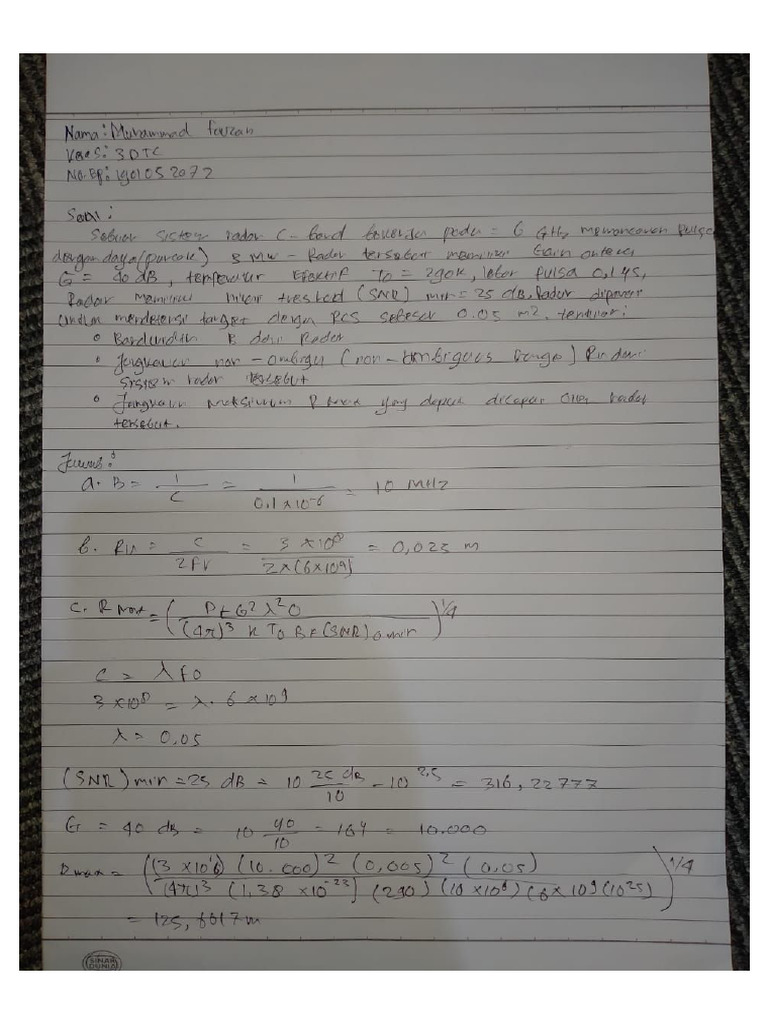 Nama: Muhammad fauzan
Kelas: 3 DTC
No.BP: 1901052072
Soal:
Sebuah sistem radar C-band bekerja pada = 6 GHz memancarkan pulsa
dengan daya (puncak) 3 MW - Radar tersebut memiliki Gain antena
G = 40 dB, temperatur Efektif To = 290k, lebar pulsa 0,1 µs,
Radar memiliki nilai treshold (SNR) min = 25 dB. Radar dipakai
untuk mendeteksi target dengan RCS sebesar 0.05 m2. tentukan:
• Bandwidth B dari Radar
• Jangkauan non-ambigu (non-Ambiguous Range) Ru dari
sistem radar tersebut
• Jangkauan maksimum R max yang dapat dicapai oleh radar
tersebut.
Jawab:
a. B = 1/C = 1/0,1 x 10-6 = 10 MHz
b. Ru = C/2Fr = 3 x 10⁸/2 x (6 x 10⁹) = 0,025 m
c. R Max = (Pt G² λ² O/(4π)³ K To B F (SNR) o min)^1/4
C = λ Fo
3 x 10⁸ = λ. 6 x 10⁹
λ = 0,05
(SNR) min = 25 dB = 10 25 dB/10 - 10 ²·⁵ = 316,22777
G = 40 dB = 10 40/10 = 10⁴ = 10.000
R max = ((3 x 10⁶) (10.000)² (0,005)² (0,05)/(4π)³ (1,38 x 10⁻²³) (290) (10 x 10⁶) (6 x 10⁹ (10²⁵))^1/4
= 125,6017 m
SINAR
DUNIA